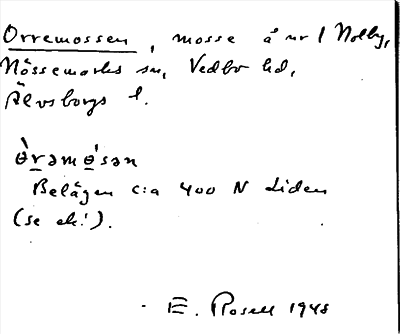 Orremossen, mosse å nr 1 Nolby,
Nössemarks sn, Vedbo hd,
Älvsborgs l.
ɵ̀rəmɵ́sən
Belägen c:a 400 N Liden
(se ek!).
E. Rosell 1948